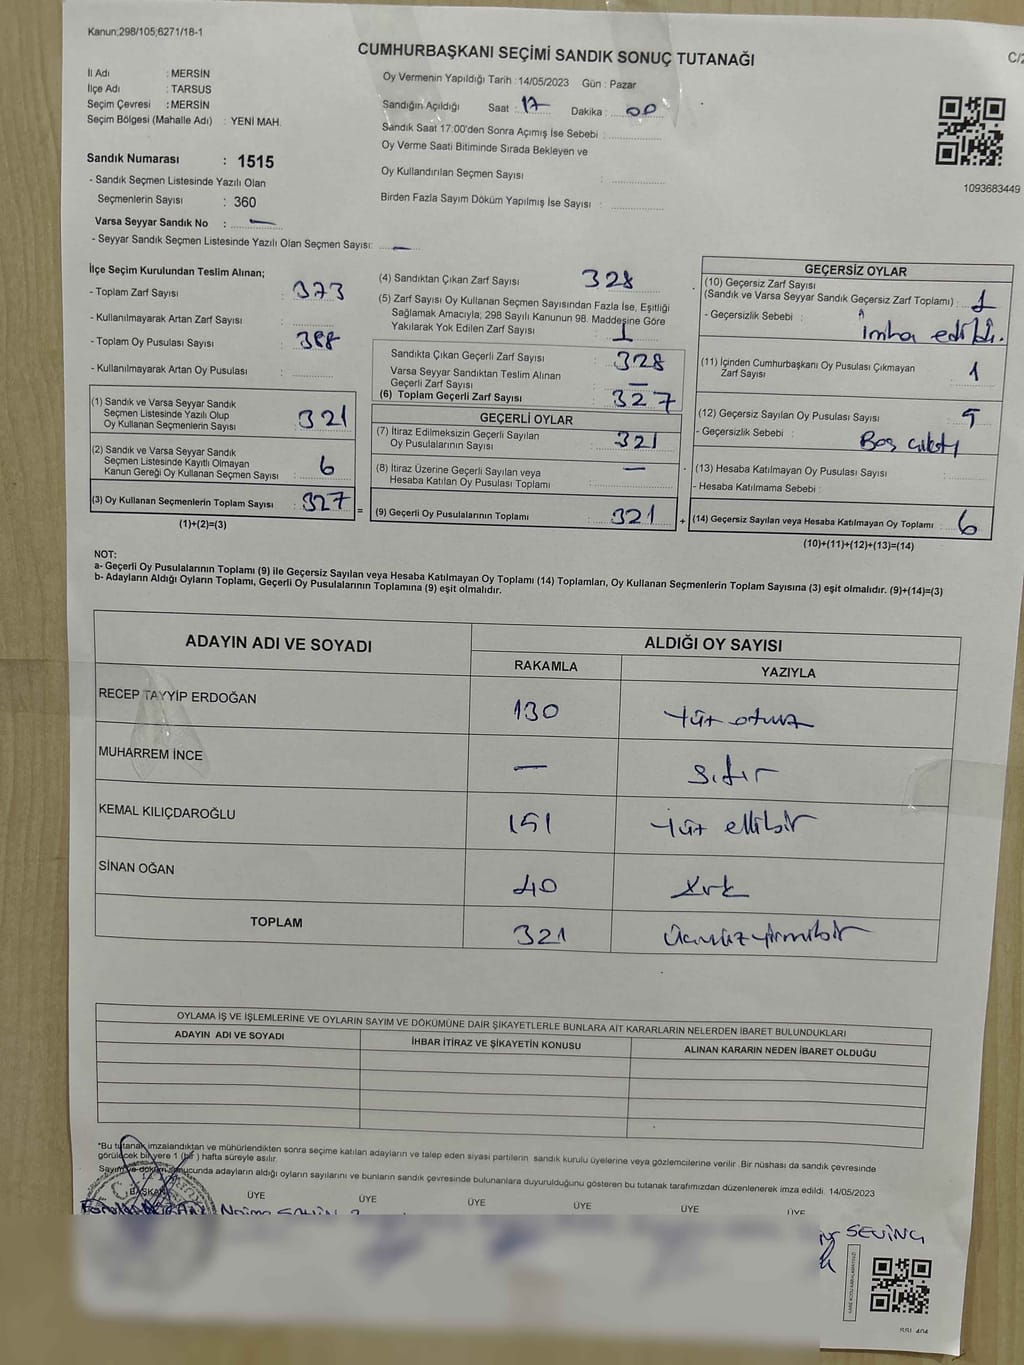 Kanun;298/105;6271/18-1
CUMHURBAŞKANI SEÇİMİ SANDIK SONUÇ TUTANAĞI
C/2
İl Adı : MERSİN
İlçe Adı : TARSUS
Seçim Çevresi : MERSİN
Seçim Bölgesi (Mahalle Adı) : YENİ MAH.
Sandık Numarası : 1515
- Sandık Seçmen Listesinde Yazılı Olan
Seçmenlerin Sayısı : 360
Varsa Seyyar Sandık No : —
- Seyyar Sandık Seçmen Listesinde Yazılı Olan Seçmen Sayısı: —
Oy Vermenin Yapıldığı Tarih : 14/05/2023 Gün : Pazar
Sandığın Açıldığı Saat : 17 Dakika : 00
Sandık Saat 17:00'den Sonra Açımış İse Sebebi :
Oy Verme Saati Bitiminde Sırada Bekleyen ve
Oy Kullandırılan Seçmen Sayısı :
Birden Fazla Sayım Döküm Yapılmış İse Sayısı :
1093683449
İlçe Seçim Kurulundan Teslim Alınan;
- Toplam Zarf Sayısı : 373
- Kullanılmayarak Artan Zarf Sayısı :
- Toplam Oy Pusulası Sayısı : 388
- Kullanılmayarak Artan Oy Pusulası :
(1) Sandık ve Varsa Seyyar Sandık
Seçmen Listesinde Yazılı Olup
Oy Kullanan Seçmenlerin Sayısı : 321
(2) Sandık ve Varsa Seyyar Sandık
Seçmen Listesinde Kayıtlı Olmayan
Kanun Gereği Oy Kullanan Seçmen Sayısı : 6
(3) Oy Kullanan Seçmenlerin Toplam Sayısı : 327
(1)+(2)=(3)
(4) Sandıktan Çıkan Zarf Sayısı 328
(5) Zarf Sayısı Oy Kullanan Seçmen Sayısından Fazla İse, Eşitliği
Sağlamak Amacıyla; 298 Sayılı Kanunun 98. Maddesine Göre
Yakılarak Yok Edilen Zarf Sayısı : 1
Sandıkta Çıkan Geçerli Zarf Sayısı : 328
Varsa Seyyar Sandıktan Teslim Alınan
Geçerli Zarf Sayısı : —
(6) Toplam Geçerli Zarf Sayısı : 327
GEÇERLİ OYLAR
(7) İtiraz Edilmeksizin Geçerli Sayılan
Oy Pusulalarının Sayısı : 321
(8) İtiraz Üzerine Geçerli Sayılan veya
Hesaba Katılan Oy Pusulası Toplamı : —
(9) Geçerli Oy Pusulalarının Toplamı : 321
GEÇERSİZ OYLAR
(10) Geçersiz Zarf Sayısı
(Sandık ve Varsa Seyyar Sandık Geçersiz Zarf Toplamı) : 1
- Geçersizlik Sebebi : 1 imha edildi.
(11) İçinden Cumhurbaşkanı Oy Pusulası Çıkmayan
Zarf Sayısı 1
(12) Geçersiz Sayılan Oy Pusulası Sayısı 5
- Geçersizlik Sebebi : Boş çıktı
(13) Hesaba Katılmayan Oy Pusulası Sayısı :
- Hesaba Katılmama Sebebi :
(14) Geçersiz Sayılan veya Hesaba Katılmayan Oy Toplamı : 6
(10)+(11)+(12)+(13)=(14)
NOT:
a- Geçerli Oy Pusulalarının Toplamı (9) ile Geçersiz Sayılan veya Hesaba Katılmayan Oy Toplamı (14) Toplamları, Oy Kullanan Seçmenlerin Toplam Sayısına (3) eşit olmalıdır. (9)+(14)=(3)
b- Adayların Aldığı Oyların Toplamı, Geçerli Oy Pusulalarının Toplamına (9) eşit olmalıdır.
ADAYIN ADI VE SOYADI
ALDIĞI OY SAYISI
RAKAMLA YAZIYLA
RECEP TAYYİP ERDOĞAN 130 yüz otuz
MUHARREM İNCE — sıfır
KEMAL KILIÇDAROĞLU 151 yüz ellibir
SİNAN OĞAN 40 kırk
TOPLAM 321 Üçyüzyirmibir
OYLAMA İŞ VE İŞLEMLERİNE VE OYLARIN SAYIM VE DÖKÜMÜNE DAİR ŞİKAYETLERLE BUNLARA AİT KARARLARIN NELERDEN İBARET BULUNDUKLARI
ADAYIN ADI VE SOYADI İHBAR İTİRAZ VE ŞİKAYETİN KONUSU ALINAN KARARIN NEDEN İBARET OLDUĞU
*Bu tutanak imzalandıktan ve mühürlendikten sonra seçime katılan adayların ve talep eden siyasi partilerin sandık kurulu üyelerine veya gözlemcilerine verilir. Bir nüshası da sandık çevresinde
görülecek bir yere 1 (bir) hafta süreyle asılır.
Sayım ve döküm sonucunda adayların aldığı oyların sayılarını ve bunların sandık çevresinde bulunanlara duyurulduğunu gösteren bu tutanak tarafımızdan düzenlenerek imza edildi. 14/05/2023
BAŞKAN ÜYE ÜYE ÜYE ÜYE ÜYE ÜYE
SEVİNÇ